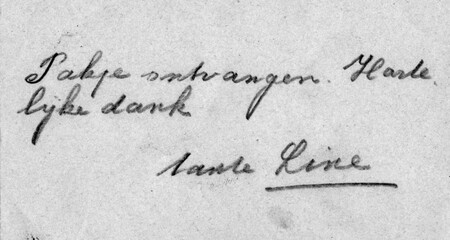 Pakje ontvangen. Harte,
lyke dank
tante Line